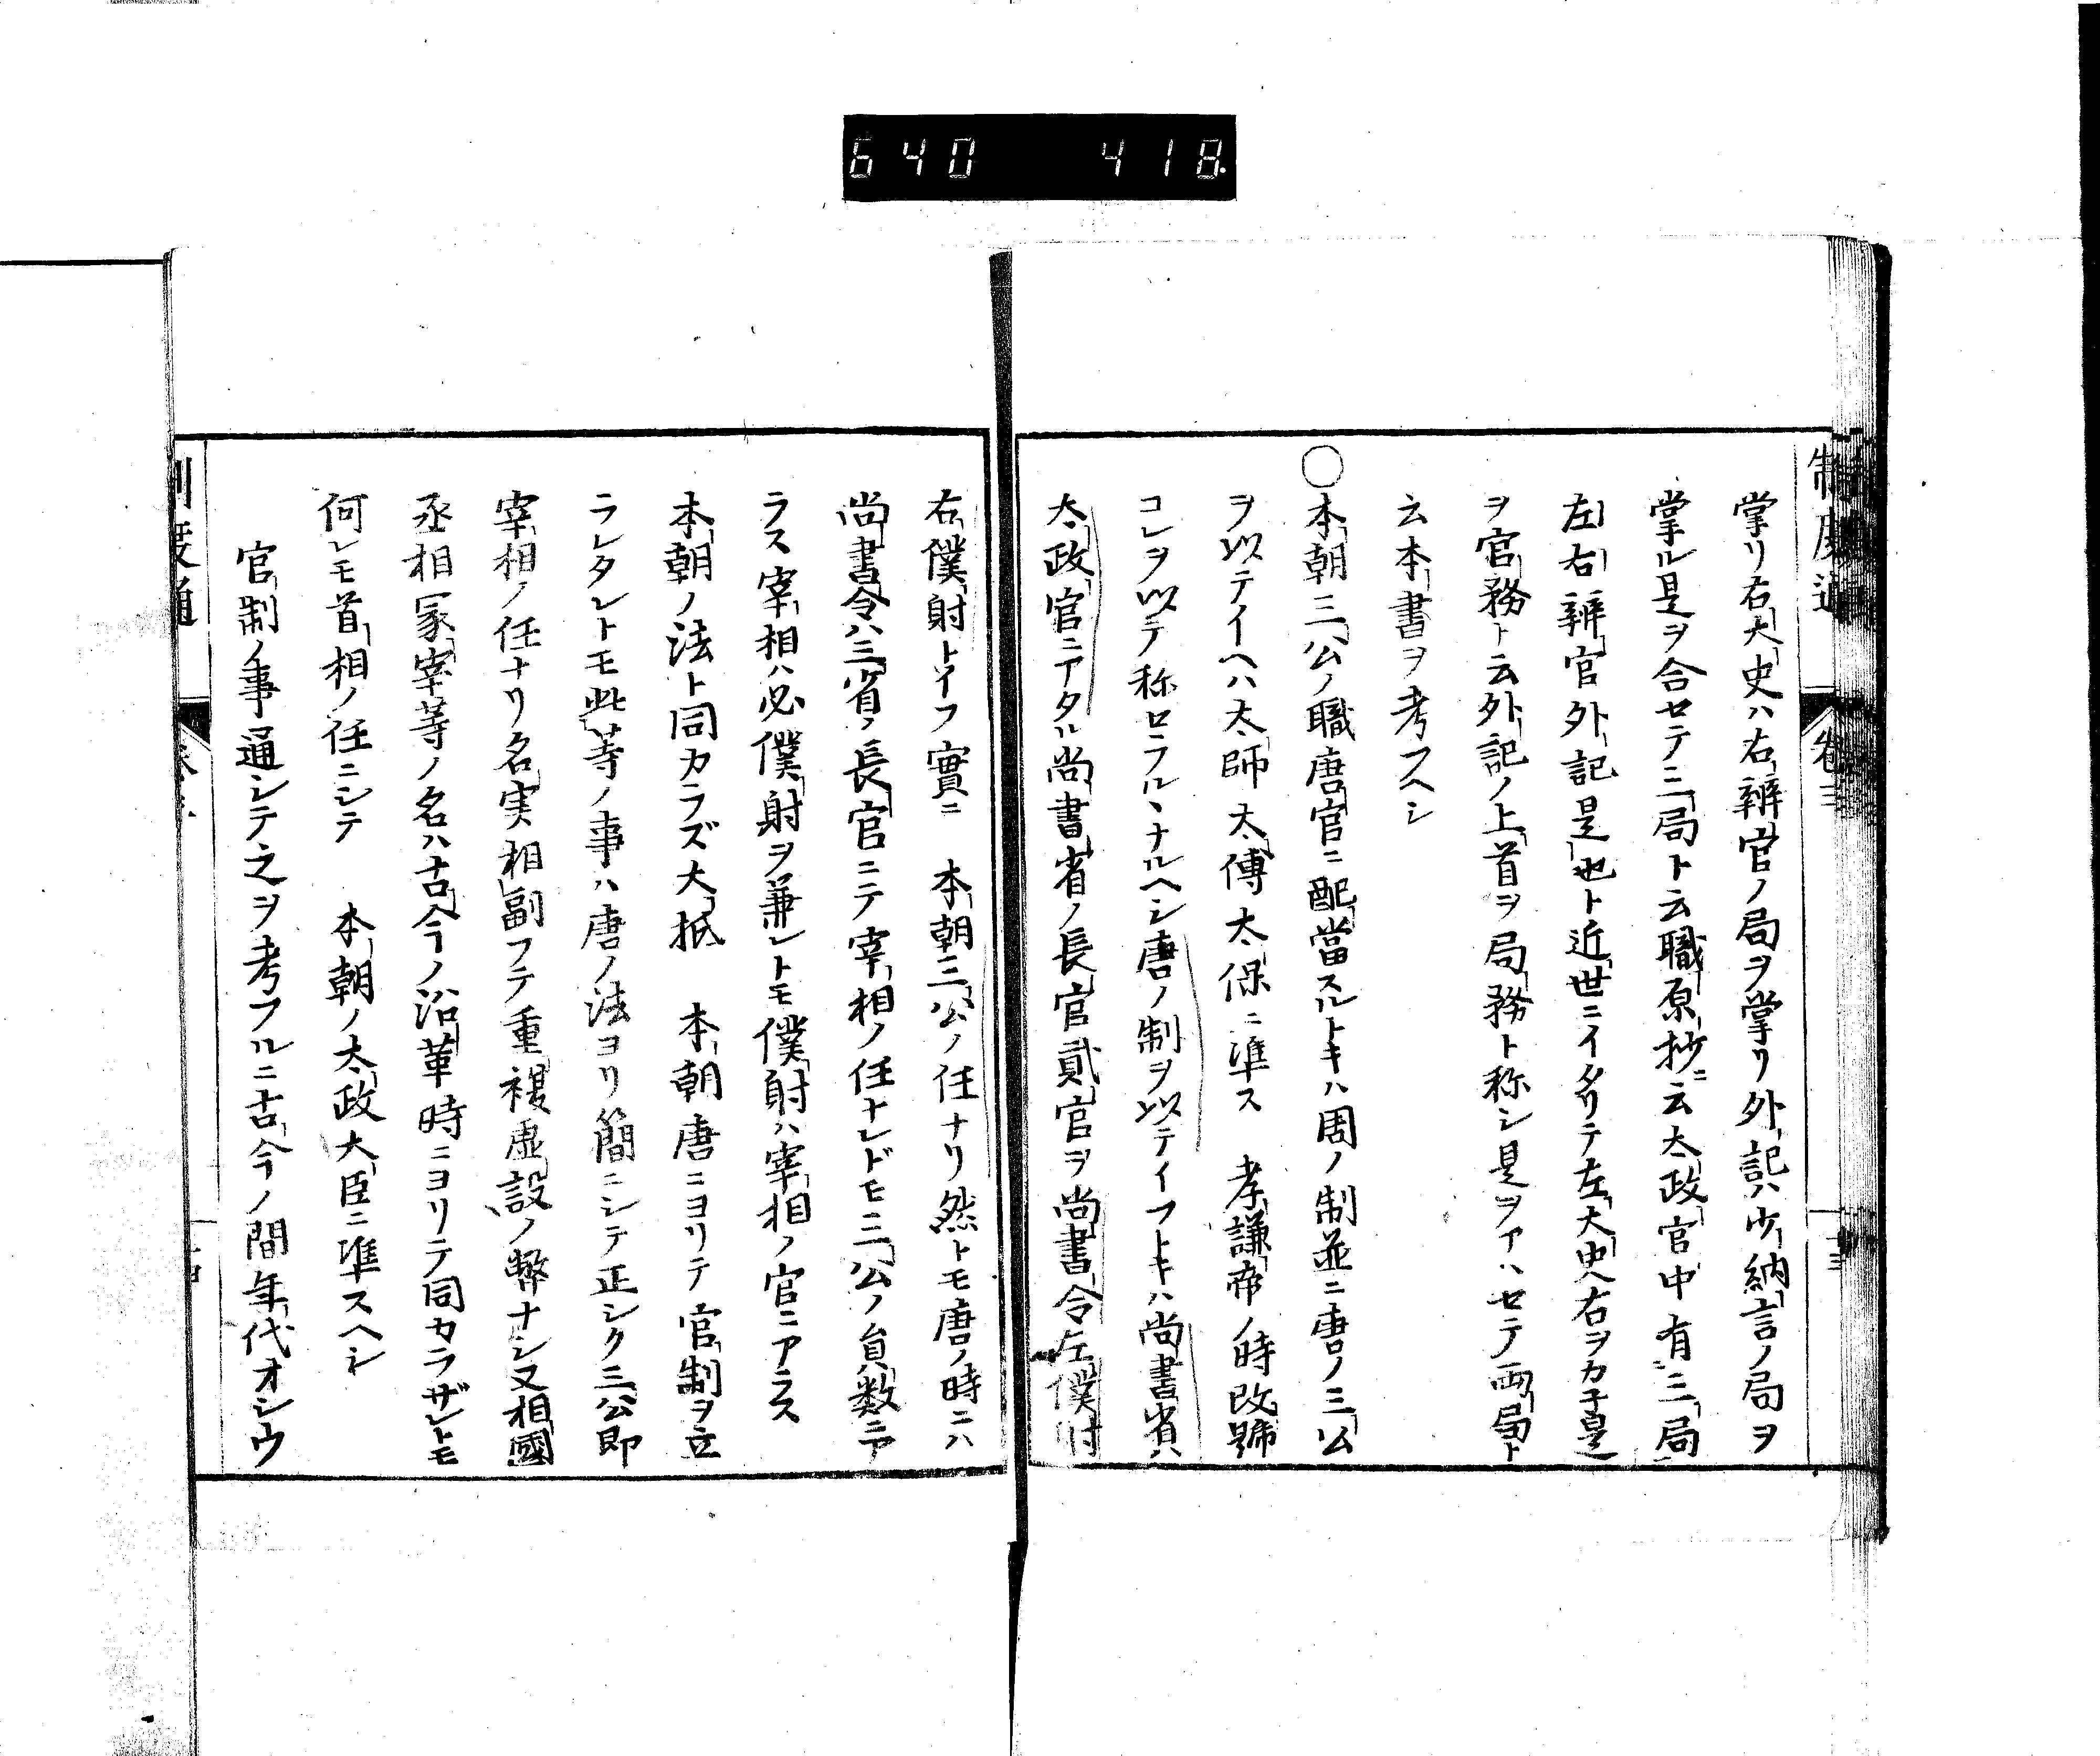 640 418
制度通 卷三 十三
掌リ右大史ハ右辨官ノ局ヲ掌リ外記ハ少納言ノ局ヲ
掌ル是ヲ合セテ三局ト云職原抄ニ云太政官中有三局
左右辨官外記是也ト近世ニイタリテ左大史ハ右ヲカ子是
ヲ官務ト云外記ノ上首ヲ局務ト称シ是ヲアハセテ兩局ト
云本書ヲ考フヘシ
○本朝三公ノ職唐官ニ配當スルトキハ周ノ制並ニ唐ノ三公
ヲ以テイヘハ太師太傅太保ニ準ス 孝謙帝ノ時改號
コレヲ以テ称セラルヽナルヘシ唐ノ制ヲ以テイフトキハ尚書省ハ
太政官ニアタル尚書省ノ長官貳官ヲ尚書令左僕射
右僕射トイフ實ニ 本朝三公ノ任ナリ然トモ唐ノ時ニハ
尚書令ハ三省ノ長官ニテ宰相ノ任ナレドモ三公ノ員数ニア
ラス宰相ハ必僕射ヲ兼レトモ僕射ハ宰相ノ官ニアラス
本朝ノ法ト同カラズ大抵 本朝唐ニヨリテ官制ヲ立
ラレタレトモ此等ノ事ハ唐ノ法ヨリ簡ニシテ正シク三公即
宰相ノ任ナリ名実相副フテ重複虚設ノ弊ナシ又相國
丞相冢宰等ノ名ハ古今ノ沿革時ニヨリテ同カラザレトモ
何レモ首相ノ任ニシテ 本朝ノ太政大臣ニ準スヘシ
官制ノ事通シテ之ヲ考フルニ古今ノ間年代オシウ
制度通